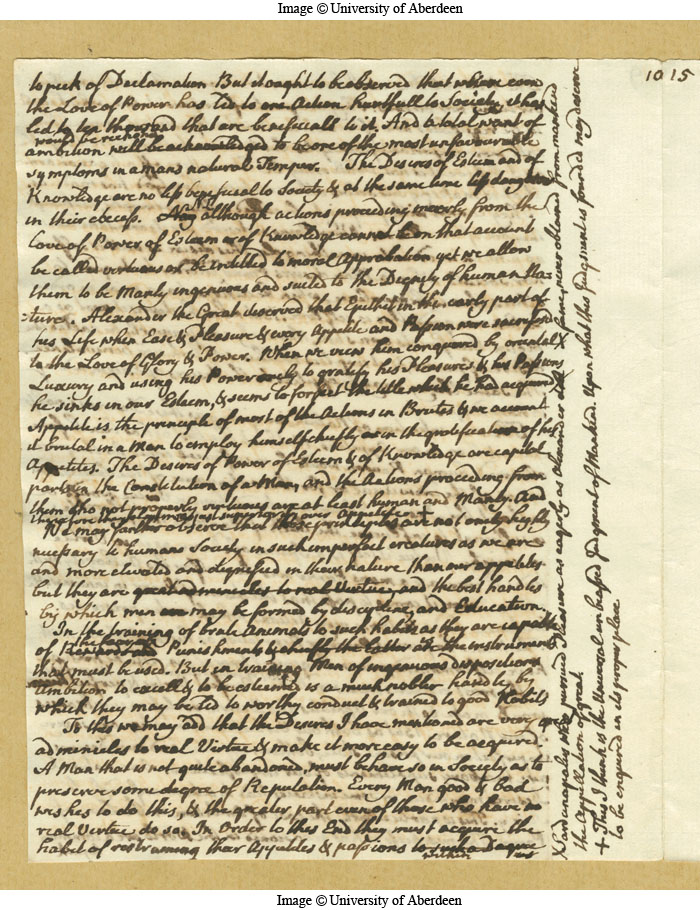 Image © University of Aberdeen
10 15
to speck of Declamation But it ought to be observed that where
the Love of Power has led to one Action hurtfull to Society, it has
led to ten thousand that are beneficiall to it. And a total want of
would be reckoned
ambition will be acknowledged to be one of the most unfavourable
symptoms in a mans natural Temper. The Desires of Esteem and of
Knowledge are no less beneficial to Society & at the same time less dangerous
in their excess. Nay although actions proceeding meerly from the
Love of Power of Esteem or of Knowledge cannot on that account
be called virtuous or be intitled to moral Approbation, yet we allow
them to be Manly ingenuous and suited to the Dignity of human Na
ture. Alexander the Great deserved that Epithet in the early part of
his Life when Ease & Pleasure & every Appetite and Passion were sacrificed
to the Love of Glory & Power. When we view him conquered by oriental
Luxury and using his Power only to gratify his Pleasures & his Passions
he sinks in our Esteem, & seems to forfeit the title which he had acquired
Appetite is the principle of most of the Actions in Brutes & we account
it brutal in a Man to employ himself chiefly in the gratification of his
Appetites. The Desires of Power of Esteem & of Knowledge are capital
parts in the Constitution of a Man, and the Actions proceeding from
them tho not properly virtuous are at least human and Manly. And
therefore they claim a just superiority over Appetite. +
We may farther observe that these principles are not only highly
necessary to humane Society in such imperfect creatures as we are
and more elevated and dignified in their nature than our appetites
but they are great adminicles to real Virtue, and the best handles
by which men may be formed by discipline, and Education.
In the training of brute Animals to such habits as they are capable
of Punishments & the instruments
that must be used. But in training Men of ingenuous dispositions
ambition to excell & to be esteemed is a much nobler handle by
which they may be led to worthy conduct & trained to good Habits
To this we may add that the Desires I have mentioned are very
adminicles to real Virtue & make it more easy to be acquired.
A Man that is not quite abandoned, must behave so in Society as to
preserve some degree of Reputation. Every Man good & bad
wishes to do this, & the greater part even of those who have no
real Virtue do so. In Order to this End they must acquire the
habit of restraining their Appetites & passions
within
pursued Pleasure as eagerly as Alexander did fame, never obtained from mankind
the Appellation of great
+ This I think is the Universal unbiased Judgment of Mankind. Upon what this Judgment is founded may deserve
to be enquired in its proper place
Image © University of Aberdeen